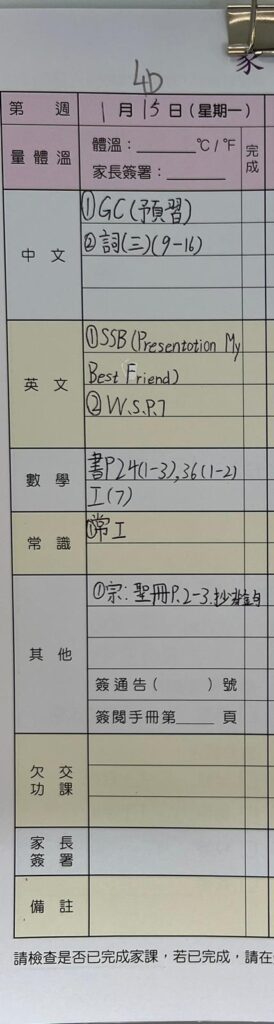 4D
家
第 週 1月15日(星期一)
量體溫 體溫:______°C/°F 完成
家長簽署:______
中文 ①GC(預習)
②詞(三)(9-16)
英文 ①SSB(Presentation My
Best Friend)
②W.S.P.7
數學 書P24(1-3),36(1-2)
工(7)
常識 ①常工
其他 ①宗:聖冊P.2-3.抄
簽通告( )號
簽閱手冊第____頁
欠交功課
家長簽署
備註
請檢查是否已完成家課,若已完成,請在